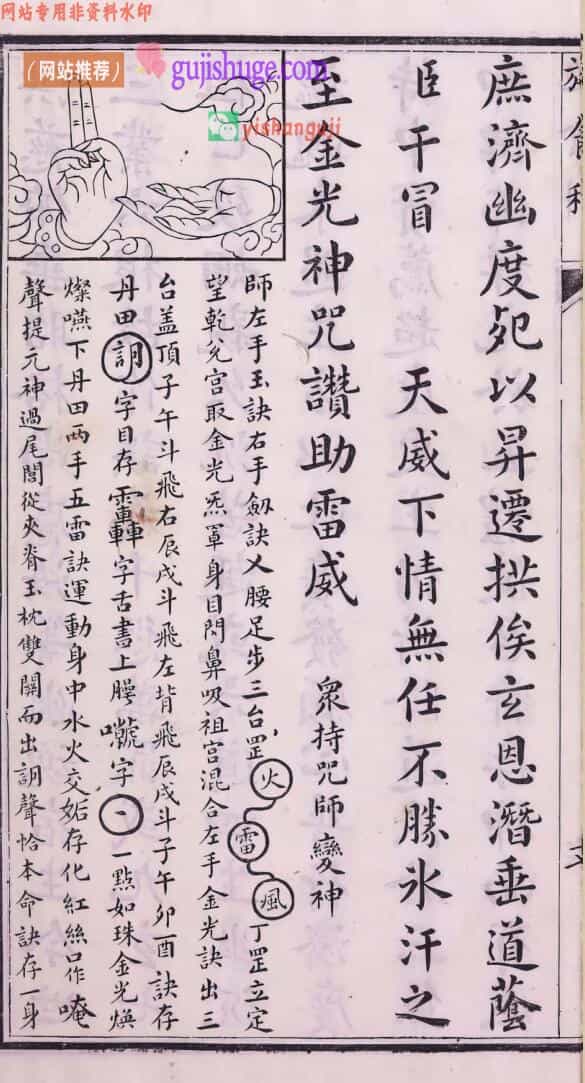 网站专用非资料水印
（网站推荐）
gujishuge.com
yishanguji
庶濟幽度夗以昇遷拱俟玄恩潛垂道蔭
臣干冒　天威下情無任不勝氷汗之
至金光神咒讚助雷威　衆持咒師變神
師左手玉訣右手劍訣乂腰足步三台罡火雷風丁罡立定
望乾兊宮取金光炁罩身目閃鼻吸祖宮混合左手金光訣出三
台盖頂子午斗飛右辰戌斗飛左背飛辰戌斗子午卯酉訣存
丹田字目存字舌書上腭字丶一點如珠金光煥
燦嚥下丹田兩手五雷訣運動身中水火交姤存化紅絲口作唵
聲提元神過尾閭從夾脊玉枕雙關而出聲恰本命訣存一身